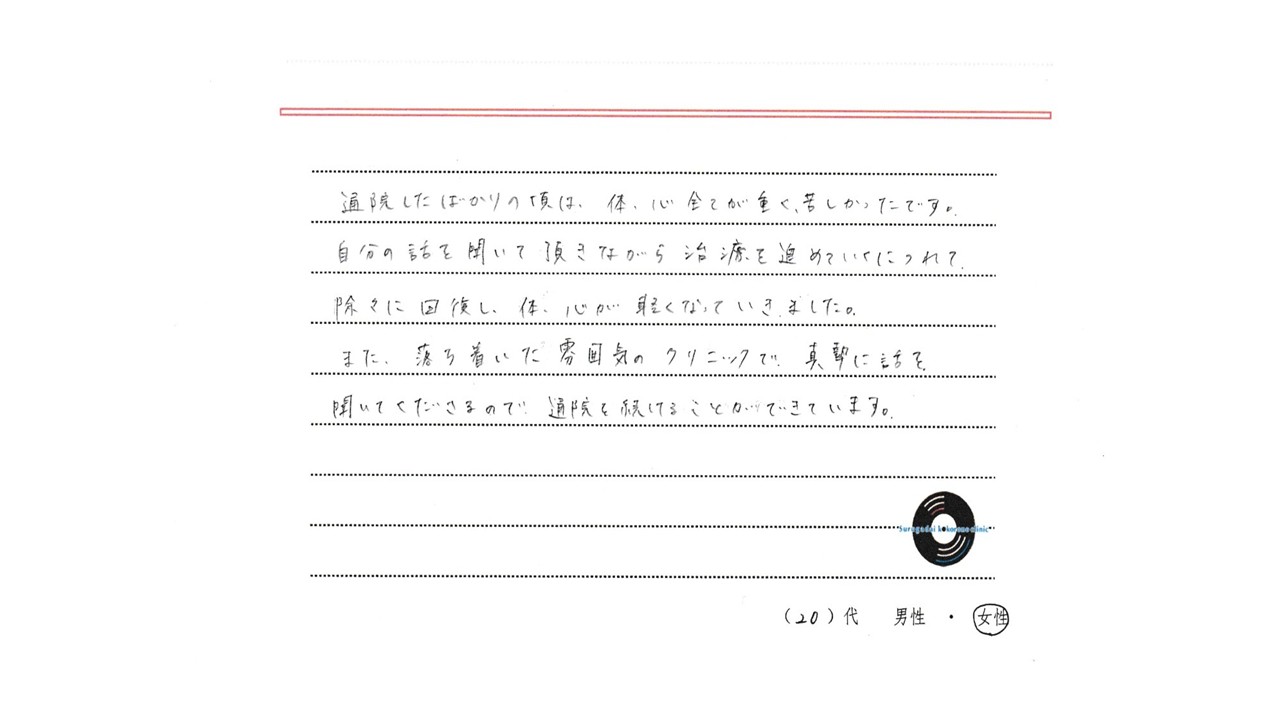 通院したばかりの頃は、体、心全てが重く、苦しかったです。
自分の話を聞いて頂きながら治療を進めていくにつれて、
除々に回復し、体、心が軽くなっていきました。
また、落ち着いた雰囲気のクリニックで、真摯に話を
聞いてくださるので、通院を続けることができています。
Surugadai kokorono clinic
(20)代 男性 ・ 女性